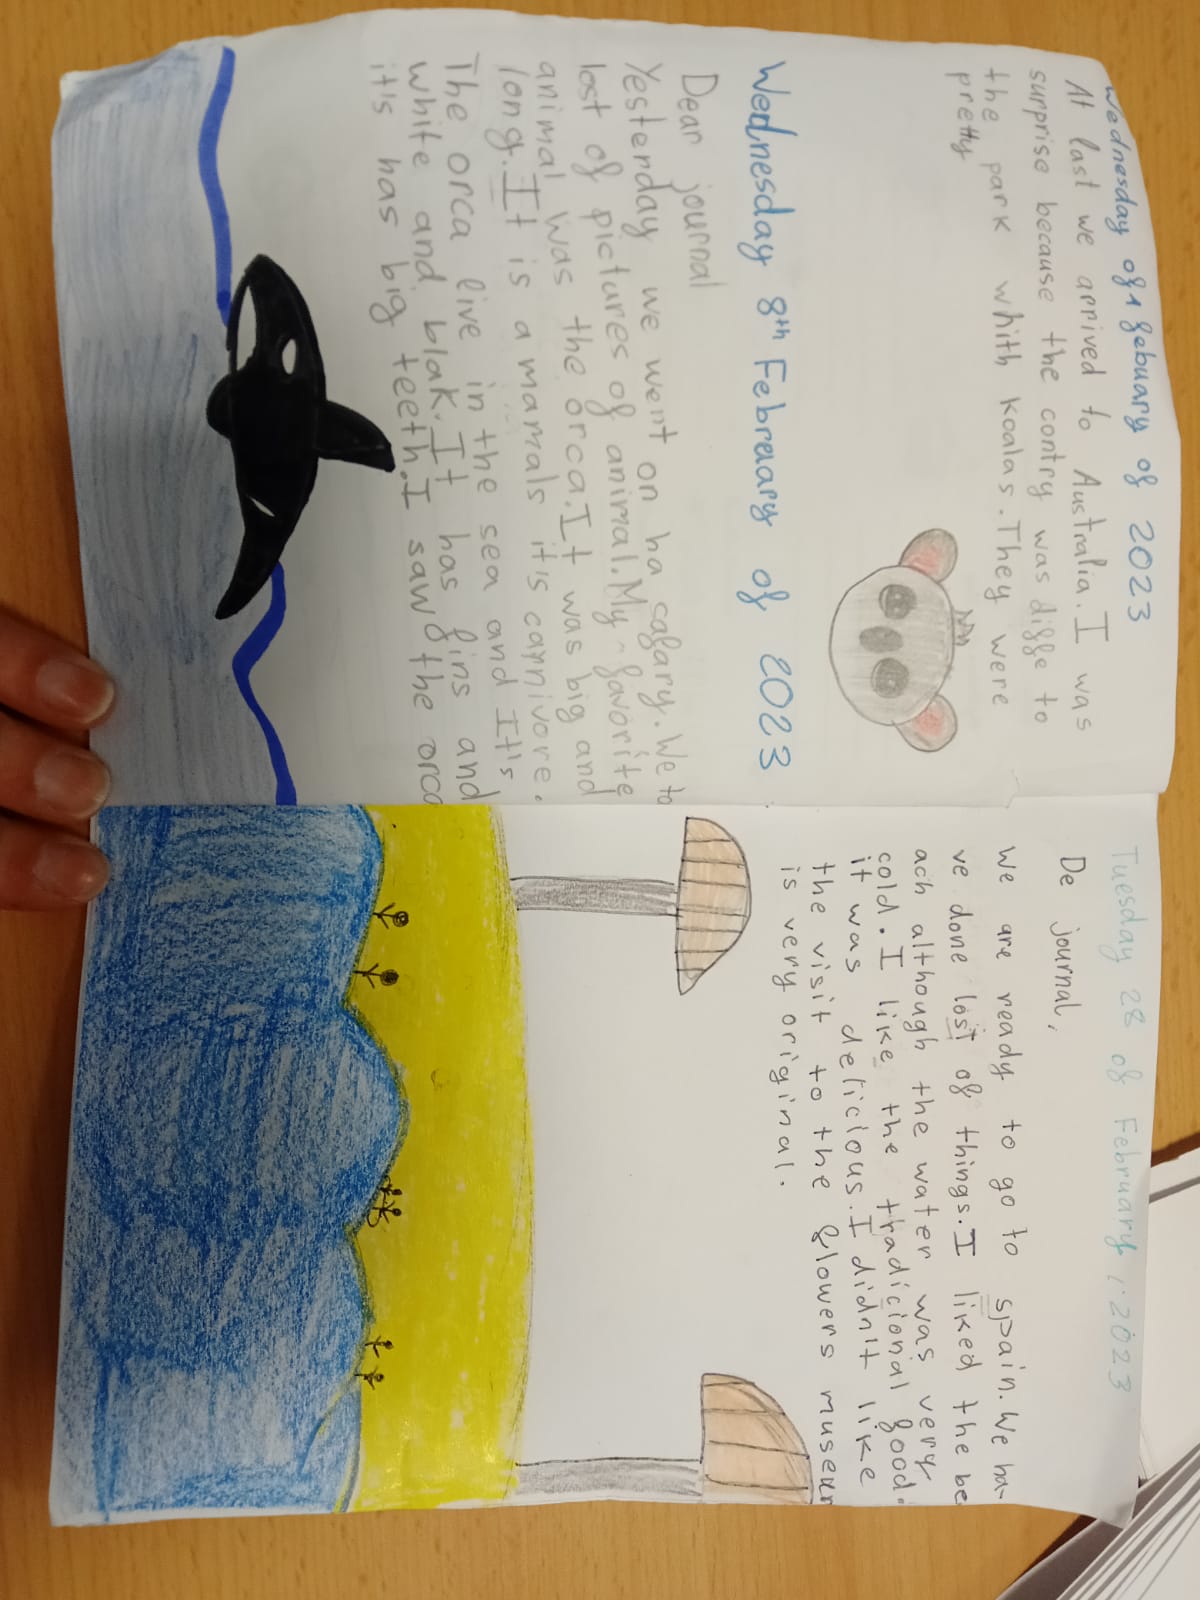 Wednesday of 1 febuary of 2023
At last we arrived to Australia. I was
surprise because the contry was diffe to
the park whith koalas. They were
pretty
Wednesday 8th February of 2023
Dear journal
Yesterday we went on ha safary. We to
lost of pictures of animal. My favorite
animal was the orca. It was big and
long. It is a mamals it's carnivore.
The orca live in the sea and It's
white and blak. It has fins and
it's has big teeth. I saw the orca
Tuesday 28 of February, 2023
De journal,
We are ready to go to spain. We ha-
ve done lost of things. I liked the be
ach although the water was very
cold. I like the tradicional food.
it was delicious. I didn't like
the visit to the flowers museum
is very original.